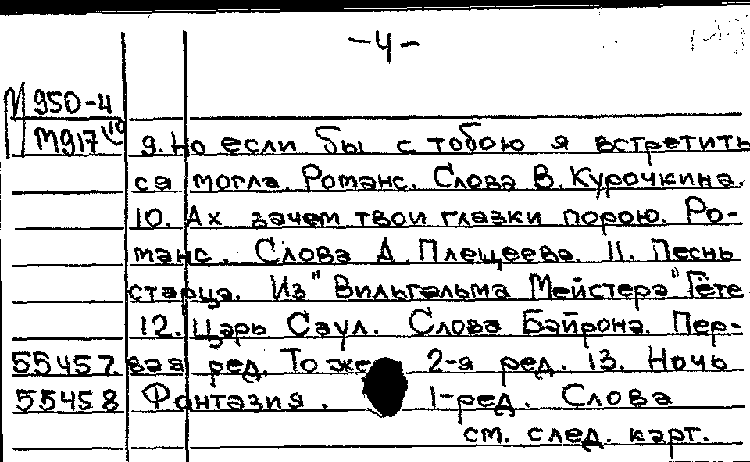 -4-
М 950-4
М917 9. Но если бы с тобою я встретить
ся могла. Романс. Слова В. Курочкина.
10. Ах зачем твои глазки порою. Ро-
манс. Слова А Плещеева. 11. Песнь
старца. Из "Вильгельма Мейстера" Гёте
12. Царь Саул. Слова Байрона. Пер-
55457 вая ред. То же 2-я ред. 13. Ночь
55458 Фантазия. 1-ред. Слова
см. след. карт.